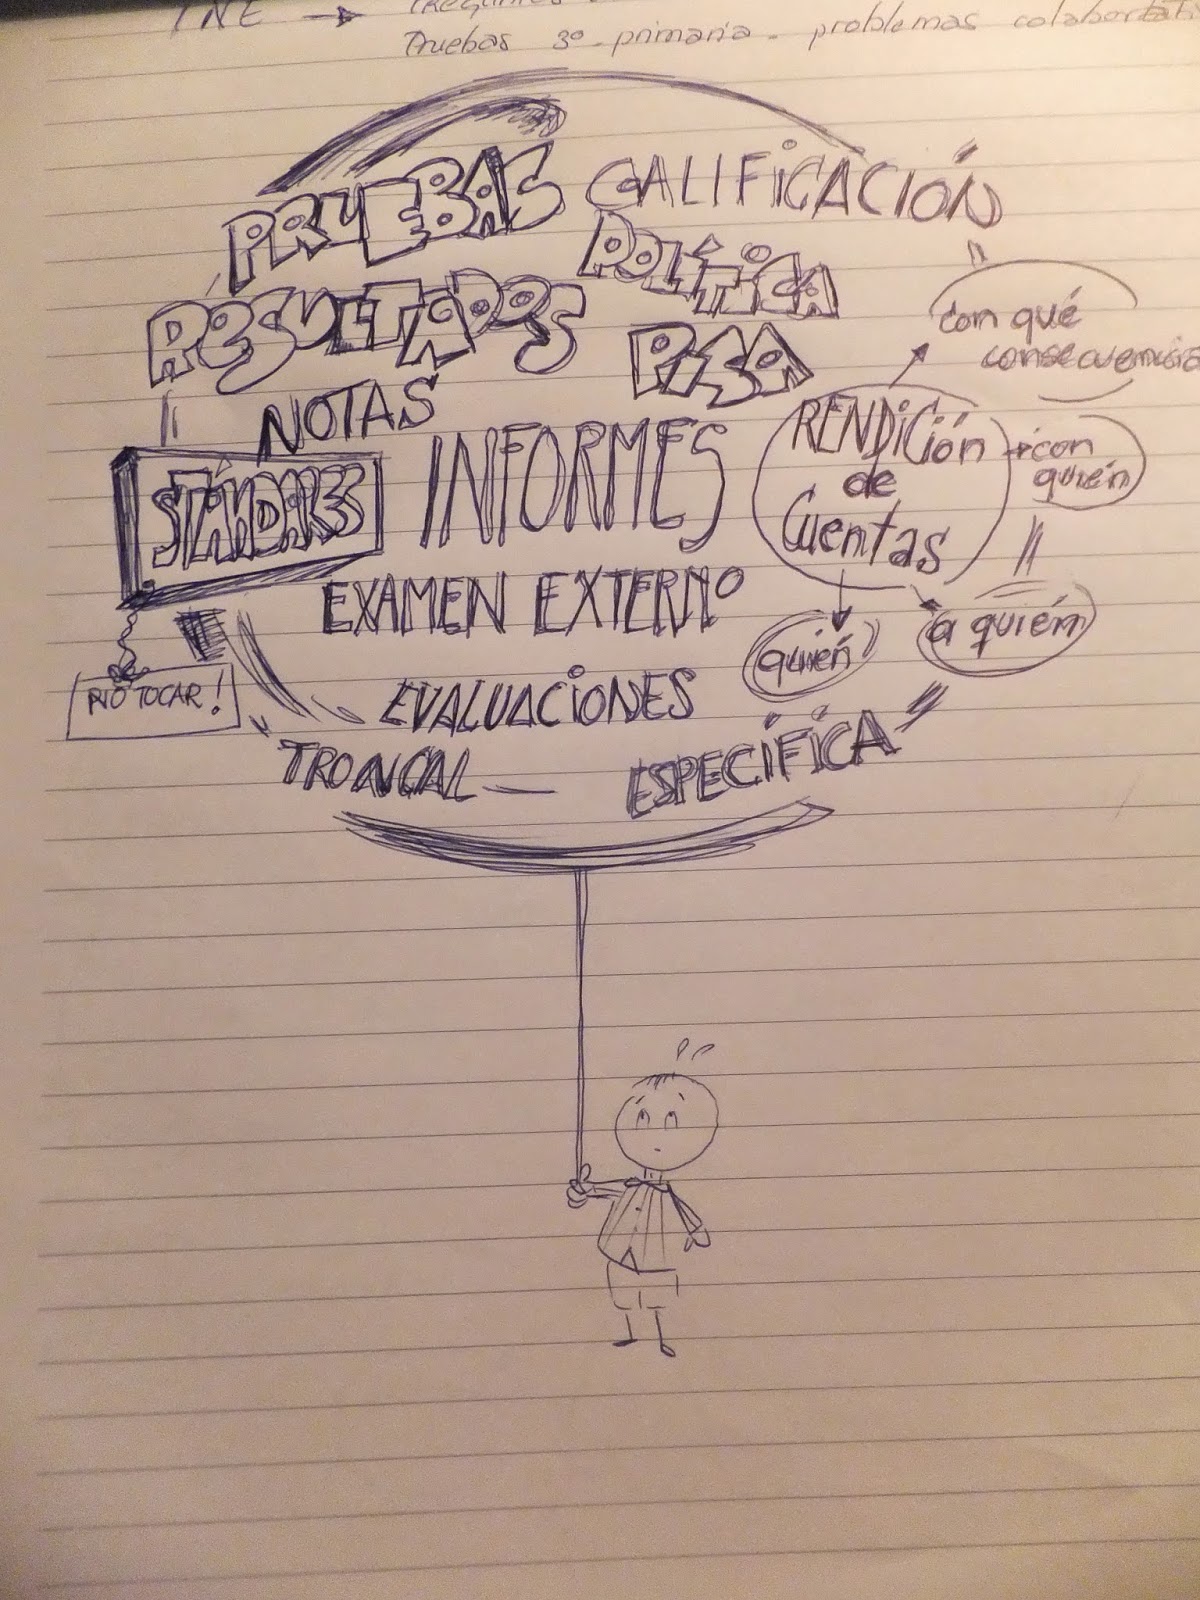 INE →
Pruebas 3º - primaria - problemas
PRUEBAS CALIFICACIÓN
POLÍTICA
RESULTADOS
PISA
con qué
consecuencia
NOTAS
RENDICIÓN
de
cuentas
con
quién
INFORMES
STÁNDARES
EXAMEN EXTERNO
quién
a quién
NO TOCAR!
EVALUACIONES
TRONCAL — ESPECÍFICA